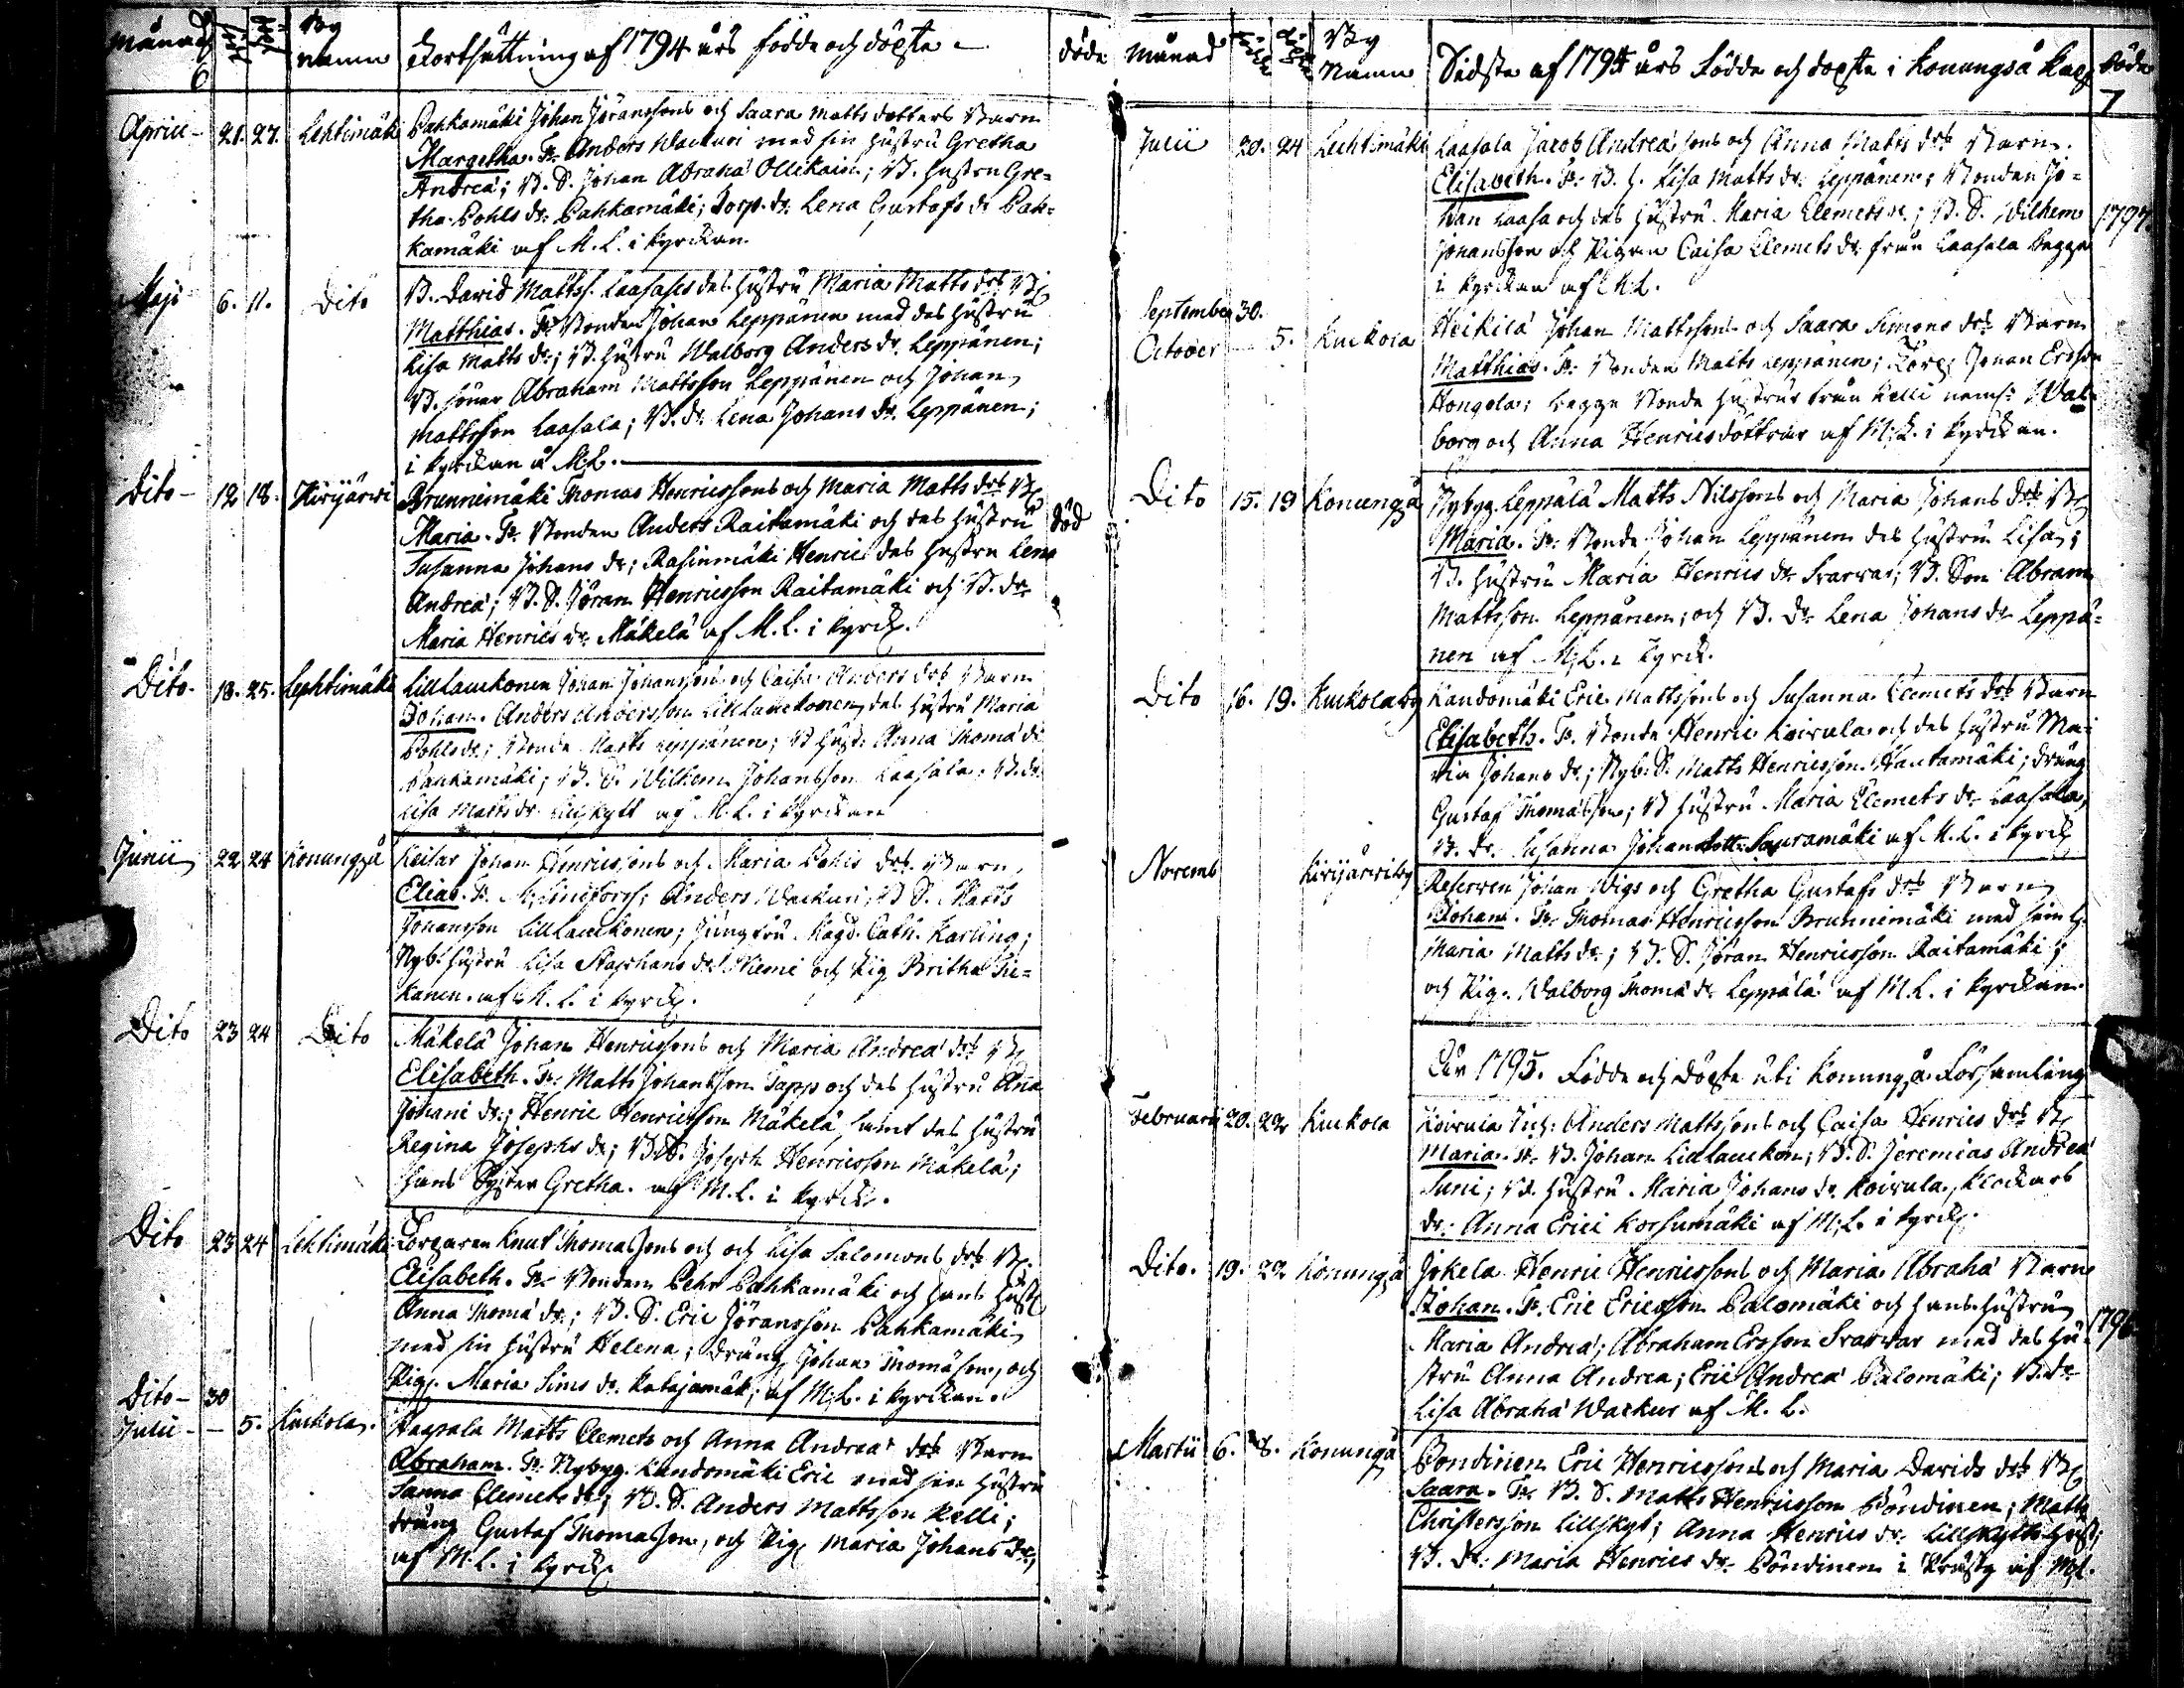 Månad
By
namn
Fortsättning af 1794 års födde och döpte
döde
6
April 21. 27. Lehtimäki
Pahkamäki Johan Jöranssons och Saara Matts dotters Barn
Margetha. Fr. Anders Wackuri med sin hustru Gretha
Andreæ; B. S. Johan Abrahā Ollikain; B. hustru Gre-
tha Pohls dr: Pahkamäki; Torp. dr. Lena Gustafs dr Pah-
kamäki af M. L. i kyrckan.
Maji 6. 11. Dito
B. David Matts. Laasalas das hustru Maria Matts drs B
Matthias. Fr. Bonden Johan Leppänen med das hustru
Lisa Matts dr; B. hustru Walborg Anders dr. Leppänen;
B. söner Abraham Mattsson Leppänen och Johan
Mattsson Laasala; B. dr. Lena Johans dr. Leppänen;
i kyrckan a M: L.
Dito 12 18. Kirijärwi
Brunnimäki Thomas Henricssons och Maria Matts drs B
Maria. Fr. Bonden Anders Raitamäki och das hustru
död
Susanna Johans dr; Rasinmäki Henric das hustru Lena
Andreæ; B. S. Jöran Henricsson Raitamäki och B. dr
Maria Henrics dr. Mäkelä af M. L. i kyrck.
Dito. 18. 25. Lephtimäki
Lillauckonen Johan Johansson och Caisa Anders drs Barn
Johan. Anders Andersson Lillauckonen, das hustru Maria
Pohls dr; Bonde Matts Leppänen; B hust: Anna Thomæ dr
Pahkamäki; B. S. Wilhem Johansson Laasala; B. dr.
Lisa Matts dr. Lillskytt af M. L. i kyrckan
Junii 22 24 Konungså
Keisar Johan Henricssons och Maria Pohls drs. Barn,
Elias. Fr. Anders Wackuri; B S. Matts
Johansson Lillauckonen; Jungfru Magd. Cath. Karling;
Nyb. hustru Lisa Staphans dr. Niemi och Pig Britha
kanen. af M. L. i kyrck.
Dito 23 24 Dito
Mäkelä Johan Henricssons och Maria Andreæ drs B
Elisabeth. Fr. Matts Johansson Tapp och das hustru Ana
Johani dr; Henric Henricsson Mäkelä samt das hustru
Regina Josephs dr; B. S. Joseph Henricsson Mäkelä;
hans Syster Gretha. af M. L. i kyrck.
Dito 23 24 Lehtimäki
Torparen Knut Thomassons och och Lisa Salomons drs B.
Elisabeth. Fr. Bonden Pehr Pahkamäki och hans hust
Anna Thomæ dr; B. S. Eric Jöransson Pahkamäki
med sin hustru Helena; dräng Johan Thomason, och
Pig. Maria Sims dr. Katajamäk; af M: L. i kyrckan.
Dito 30
Julii 5. Kuckola.
Haapala Matts Clemets och Anna Andreæ drs Barn
Abraham. Fr. Nybyg. Kandomäki Eric med sin hustru
Sanna Clemets dr; B. S. Anders Mattsson Kelli;
dräng Gustaf Thomasson, och Pig Maria Johans dr,
af M. L. i kyrck
Månad
By
Namn
Sidsta af 1794 års födde och döpte i Konungså Kap
döde
7
Julii 20. 24 Lechtimäki
Laasala Jacob Andreæ sons och Anna Matts drs Barn.
Elisabeth. Fr. B. h. Lisa Matts dr. Leppänen; Bonden Jo-
han Laasa och das hustru Maria Clemets dr; B. S. Wilhem
1797.
Johansson och Pigan Caisa Clemets dr. från Laasala begge
i kyrckan af M. L.
September 30.
October 5. Kuckola
Heikilä Johan Mattssons och Saara Simons drs Barn
Matthias. Fr. Bonden Matts Leppänen; Torp: Johan Ersson
Hongola; begge Bonde hustrur från Kelli nemt: Wal-
borg och Anna Henricsdöttrar af M: L. i kyrckan.
Dito 15. 19 Konungså
Nybyg. Leppälä Matts Nilssons och Maria Johans drs B
Maria. Fr. Bonde Johan Leppänen das hustru Lisa;
B. hustru Maria Henrics dr Svarvar; B. Son Abram
Mattsson Leppänen; och B. dr Lena Johans dr Leppä-
nen af M: L. i kyrck.
Dito 16. 19. Kuckola by
Kandomäki Eric Mattssons och Susanna Clemets drs Barn
Elisabeth. Fr. Bonde Henric Koivula och das hustru Ma-
ria Johans dr; Nyb. S. Matts Henricsson Hautamäki; dräng
Gustaf Thomasson; B hustru Maria Clemets dr Laasala,
B. dr. Susanna Johan dott. Sauramäki af M. L. i kyrck
Novemb Kirijärwiby
Reserven Johan Wigs och Gretha Gustafs drs Barn
Johan. Fr. Thomas Henricsson Brunnimäki med sin h.
Maria Matts dr; B. S. Jöran Henricsson Raitamäki;
och Pig. Walborg Thomæ dr Leppälä af M. L. i kyrckan.
År 1795. Födde och döpte uti Konungså Församling
Februarii 20. 22 Kuckola
Koivula Anders Mattssons och Caisa Henrics drs B
Maria. Fr. B. Johan Lillauckon; B. S. Jeremias Andreæ
Suni; B. hustru Maria Johans dr. Koivula, klockars
dr. Anna Erici Korsumäki af M: L. i kyrck.
Dito. 19. 22 Konungså
Jokela Henric Henricssons och Maria Abrahā Barn
Johan. Fr. Eric Ericsson Palomäki och hans hustru
1796
Maria Andreæ; Abraham Ersson Svarvar med das hu-
stru Anna Andrea; Eric Andreæ Palomäki; B. dr
Lisa Abrahā Wackur af M. L.
Martii 6. 8. Konungså
Pöndinen Eric Henricssons och Maria Davids drs B
Saara. Fr. B. S. Matts Henricsson Pöndinen; Matts
Christersson Lillskyt; Anna Henrics dr. Lillskytts hust;
B. dr: Maria Henrics dr. Pöndinen i Prästg af M: L.